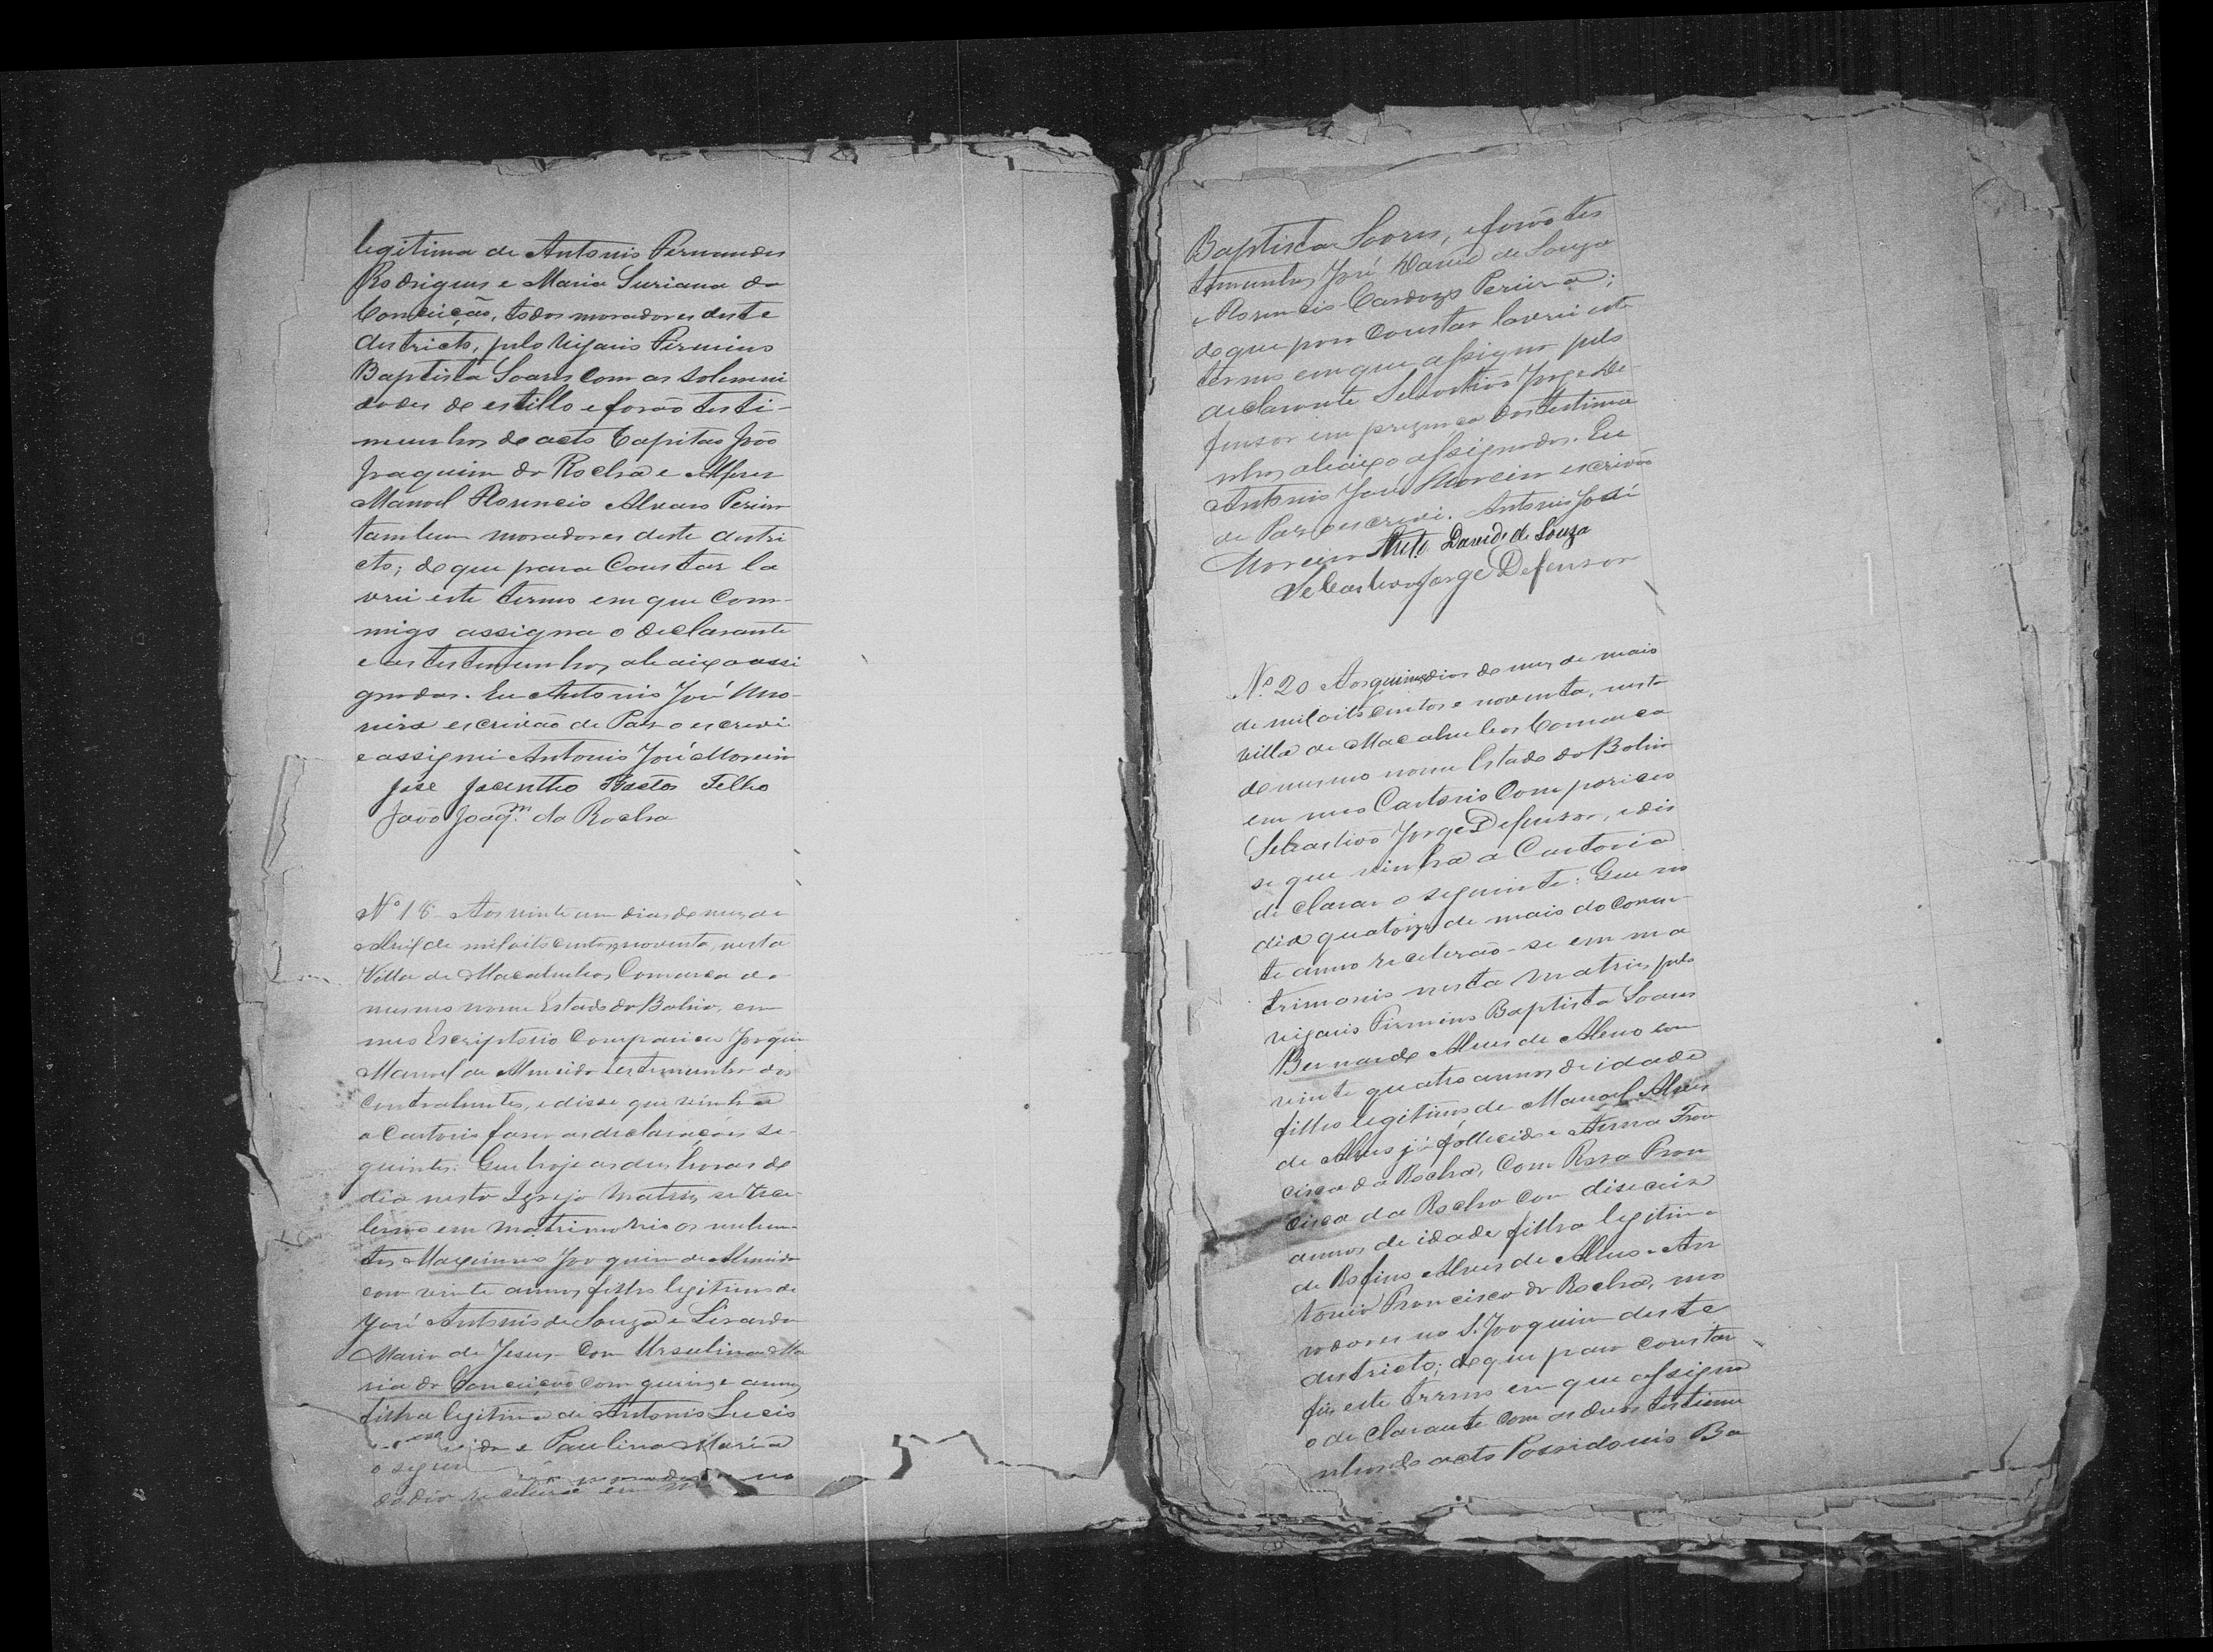 legitima de Antonio Fernandes
Rodrigues e Maria Suriana da
Conceição, todos moradores deste
districto, pelo Vigario Firmino
Baptista Soares com as solemni
dades de estillo e forão testi-
munhas do acto Capitão João
Joaquim da Rocha e Alferes
Manoel Florencio Alvares Pereira
tambem moradores deste distri
cto; de que para Constar la
vrei este termo em que Com-
migo assigna o declarante
e as testemunhas abaixo assi
gnadas. Eu Antonio José Mo-
reira escrivão de Paz o escrevi
e assignei Antonio José Moreira
José Jacintho Bastos Filho
João Joaqm. da Rocha
Nº 18 Aos vinte um dias do mez de
Abril de mil oito centos noventa, nesta
Villa de Macahubas, Comarca do
mesmo nome Estado da Bahia, em
meo Escriptorio compareceu Joaquim
Manoel de Almeida testemunha dos
contrahentes, e disse que vinha
a Cartorio faser as declaraçoes se-
guintes: Que hoje as des horas do
dia nesta Igreja Matriz, se rece-
berão em matrimonio os nuben-
tes Maximino Joaquim de Almeida
com vinte annos filho legitimo de
José Antonio de Souza e Lisarda
Maria de Jesus, Com Ursulina Ma
ria da Conceição com quinze annos
filha legitima de Antonio Lucio
e Paulina Maria
o segui
do dia receberão em
Baptista Soares, e forão tes
temunhas José David de Souza
e Florencio Cardozo Pereira;
do que para Constar lavrei este
termo em que assigna pelo
declarante Sebastião Jorge De-
fensor em prezença das testimu
nhas abaixo assignadas. Eu
Antonio José Moreira escrivão
de Paz o escrevi. Antonio José
Moreira Anto. David de Souza
Sebastião Jorge Defensor
Nº 20 Aos quinze dias do mez de maio
de mil oito centos e noventa, nesta
Villa de Macahubas Comarca
do mesmo nome Estado da Bahia
em meo Cartorio Com pariceo
Sebastião Jorge Defensor, e dis
se que vinha a Cartorio
declarar o seguinte: Que no
dia quatorze de maio do Corren
te anno receberão-se em ma
trimonio nesta Matriz, pelo
vigario Firmino Baptista Soares
Bernardo Alves de Abreo com
vinte quatro annos de idade
filho legitimo de Manoel Alves
de Abreo já fallecido e Anna Fran
cisca da Rocha, Com Rosa Fran
cisca da Rocha com diseceis
annos de idade filha legitima
de Rofino Alves de Abreo e An
tonia Francisca da Rocha, mo
radores no S. Joaquim deste
districto; do que para constar
fis este termo em que assigna
o declarante com as duas testimu
nhas do acto Possidonio Ba